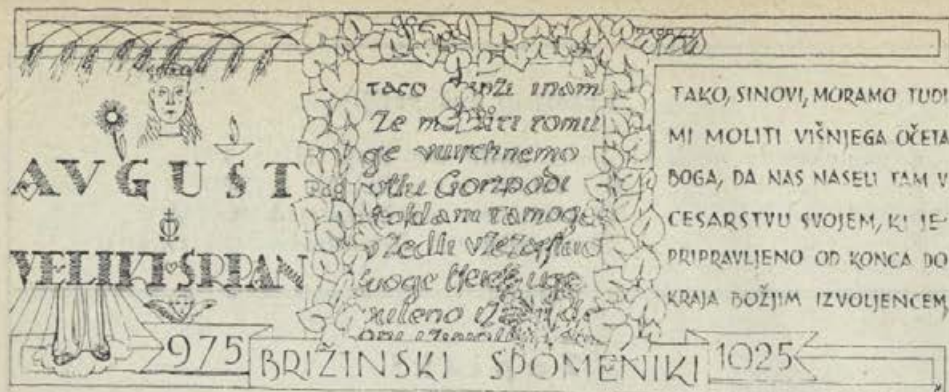 AVGUŠT
VELIKI SRPAN
taco zinzi inam
Ze modliti tomu
ge vuirchnemo
Gozpodi
tamoge
vzedli
tvoge
TAKO, SINOVI, MORAMO TUDI
MI MOLITI VIŠNJEGA OČETA
BOGA, DA NAS NASELI TAM V
CESARSTVU SVOJEM, KI JE
PRIPRAVLJENO OD KONCA DO
KRAJA BOŽJIM IZVOLJENCEM,
975 BRIŽINSKI SPOMENIKI 1025